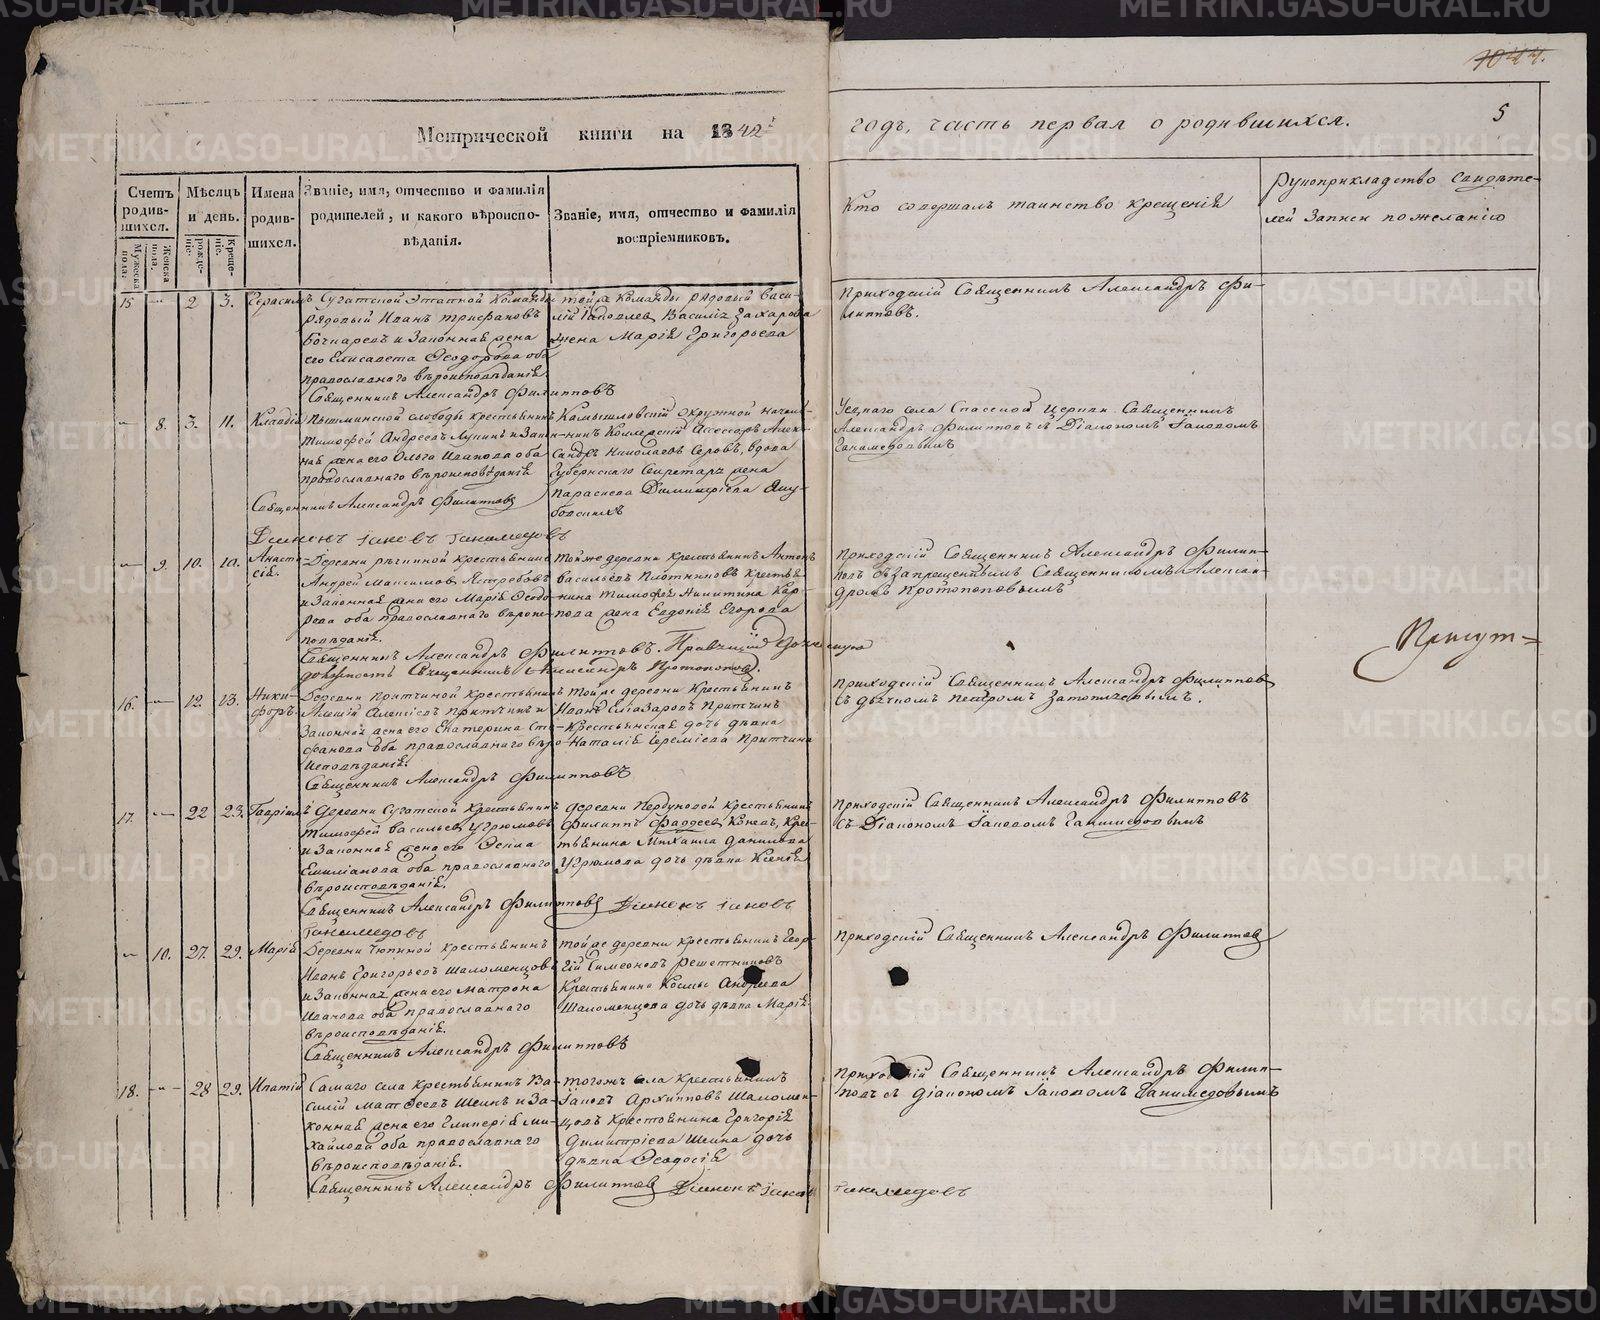 1044.
5
Метрической книги на 1842й
годъ, часть первая о родившихся.
Счетъ родив-
шихся.
Мужеска пола.
Женска пола.
Мѣсяцъ и день.
рожде-
ніе.
Креще-
ніе.
Имена
родив-
шихся.
Званіе, имя, отчество и фамилія
родителей, и какого вѣроиспо-
вѣданія.
Званіе, имя, отчество и фамилія
воспріемниковъ.
Кто совершалъ таинство крещенія
Рукоприкладство свидѣте-
лей записи по желанію
15 — 2 3. Герасимъ
Сугатской Этатной команды
рядовый Иванъ Трифановъ
Бочкаревъ и законная жена
его Елисавета Ѳеодорова оба
православнаго вѣроисповѣданія.
Священникъ Александръ Филипповъ
тойже команды рядовый Васи-
лій Василія Захарова
жена Марія Григорьева
Приходскій Священникъ Александръ Фи-
липповъ.
— 8. 3. 11. Клавдія
Пышминской слободы крестьянинъ
Тимофей Андреевъ Лупинъ и закон-
ная жена его Ольга Иванова оба
православнаго вѣроисповѣданія
Священникъ Александръ Филипповъ
Діаконъ Іаковъ Ганимедовъ
Камышловскій окружной началь-
никъ Коллежскій Ассесоръ Алек-
сандръ Николаевъ Серовъ, вдова
Губернскаго Секретаря жена
Параскева Димитріева
Александръ Филипповъ съ Діакономъ Іаковомъ
Ганимедовымъ
— 9. 10. 10. Анаста-
сія.
крестьянинъ
Андрей Максимовъ Ястребовъ
и законная жена его Марія Ѳеодо-
рова оба православнаго вѣроис-
повѣданія.
Священникъ Александръ Филипповъ. Правящій
должность Священникъ Александръ Протопоповъ.
Тойже деревни крестьянинъ Антонъ
Васильевъ Плотниковъ крестья-
нина Тимофея Никитина Кар-
пова жена Евдокія Егорова
Приходскій Священникъ Александръ Филип-
повъ съ запрещеннымъ Священникомъ Алексан-
дромъ Протопоповымъ
Присут=
16. — 12. 13. Ники-
форъ.
Деревни Притчиной крестьянинъ
Алексій Алексіевъ Притчинъ и
законная жена его Екатерина Сте-
фанова оба православнаго вѣро-
исповѣданія.
Священникъ Александръ Филипповъ
тойже деревни крестьянинъ
Иванъ Елиазаровъ Притчинъ
крестьянская дочь дѣвка
Наталія Іереміева Притчина
Приходскій Священникъ Александръ Филипповъ
съ дьячкомъ Петромъ Затопляевымъ.
17. — 22 23. Гавріилъ
Деревни Сугатской крестьянинъ
Тимофей Васильевъ Угрюмовъ
и законная жена его Ѳекла
Емиліанова оба православнаго
вѣроисповѣданія.
Священникъ Александръ Филипповъ Діаконъ Іаковъ
Ганимедовъ
деревни Первуновой крестьянинъ
Филиппъ Фаддеевъ Коневъ, крес-
тьянина Михаила Данилова
Угрюмова дочь дѣвка Ксенія
Приходскій Священникъ Александръ Филипповъ
съ Діакономъ Іаковомъ Ганимедовымъ
— 10. 27. 29. Марія
Деревни Чюпиной крестьянинъ
Иванъ Григорьевъ Шаломенцовъ
и законная жена его Матрона
Иванова оба православнаго
вѣроисповѣданія.
Священникъ Александръ Филипповъ
тойже деревни крестьянинъ Геор-
гій Симеоновъ Решетниковъ
крестьянина Космы Андреева
Шаломенцова дочь дѣвка Марія
Приходскій Священникъ Александръ Филипповъ
18. — 28 29. Ипатій
Самаго села крестьянинъ Ва-
силій Матѳеевъ Шеинъ и за-
конная жена его Гликерія Ми-
хайлова оба православнаго
вѣроисповѣданія.
Священникъ Александръ Филипповъ Діаконъ Іаковъ Ганимедовъ
тогожъ села крестьянинъ
Іаковъ Архипповъ Шаломен-
цовъ крестьянина Григорія
Димитріева Шеина дочь
дѣвка Ѳеодосія
Приходскій Священникъ Александръ Филип-
повъ съ діакономъ Іаковомъ Ганимедовымъ